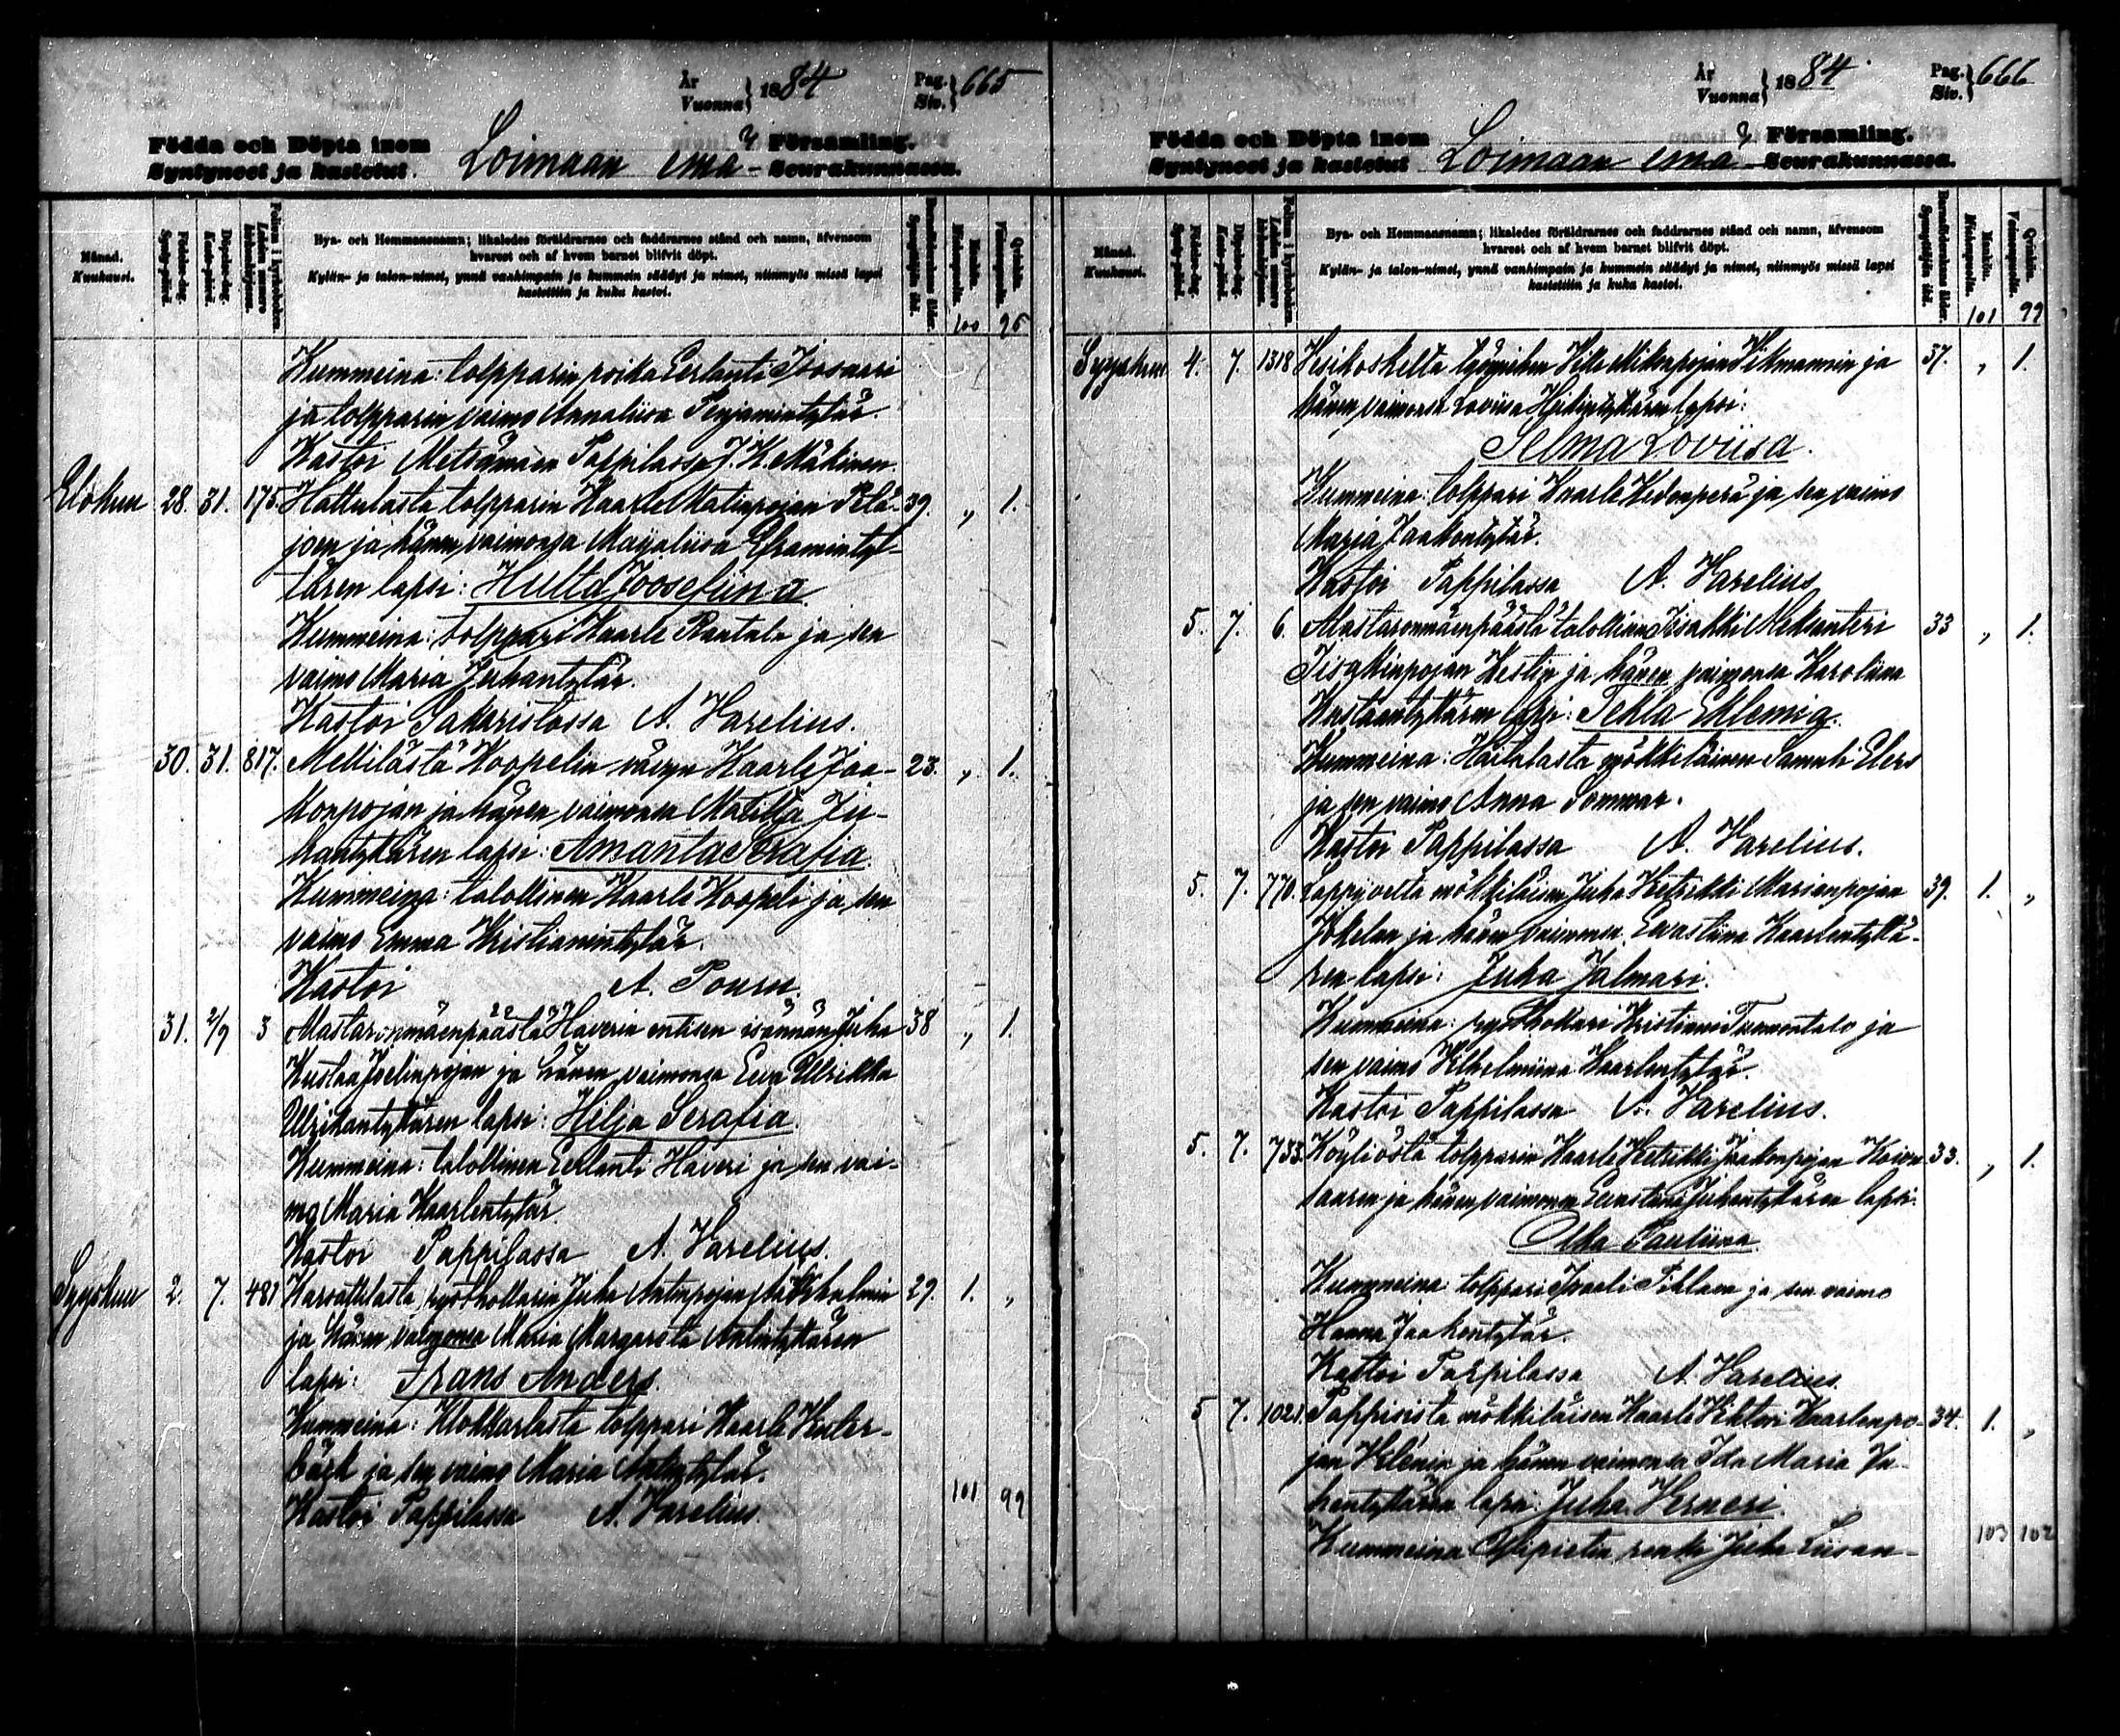 År
Vuonna } 1884
Pag.
Siv. } 665
Födda och Döpta inom
Syntyneet ja kastetut
Loimaan emä-
Församling.
Seurakunnassa.
Månad.
Kuukausi.
Födelse-dag.
Synty-päivä.
Döpelse-dag.
Kaste-päivä.
Bya- och Hemmansnamn; likaledes föräldrarnes och faddrarnes stånd och namn, äfvensom
hvarest och af hvem barnet blifvit döpt.
Kylän- ja talon-nimet, ynnä vanhimpain ja kummein säädyt ja nimet, niinmyös missä lapsi
kastettiin ja kuka kastoi.
Barnaföderskans ålder.
Synnyttäjän ikä.
Mankön.
Miehenpuolia.
Qvinkön.
Vaimonpuolia.
100 96
Kummeina: tolpparin poika Eerlanti Joosuasi
ja tolpparin vaimo Annaliisa Penjamintytär.
Kastoi Metsämaan Pappilassa J. K. Mäkinen.
Elokuu 28. 31. 175. Hattulasta tolpparin Kaarle Matinpojan 39. „ 1.
joen ja hänen vaimonsa Majaliisa Eframintyt-
tären lapsi: Hulta Joosefiina.
Kummeina: tolppari Kaarle Rantala ja sen
vaimo Maria Juhantytär.
Kastoi Sakaristossa A. Varelius.
30. 31. 817. Mellilästä Koopelin vävyn Kaarle Jaa- 23. „ 1.
konpojan ja hänen vaimonsa Matilta Ju-
hantyttären lapsi: Amanta Serafia.
Kummeina: talollinen Kaarle Koopeli ja sen
vaimo Emma Kristianintytär.
Kastoi A. Pouru.
31. 2/9 3 Mastaronmäenpäästä Haverin entisen isännän Juha 38 „ 1.
Kustaa Joelinpojan ja hänen vaimonsa Eeva Ulriikka
Ulrikantyttären lapsi: Hilja Serafia.
Kummeina: talollinen Eerlanti Haveri ja sen vai-
mo Maria Kaarlentytär.
Kastoi Pappilassa A. Varelius.
Syyskuu 2. 7. 481 Karsattilasta pyöthollarin Juha Antinpojan 29. 1. „
ja hänen vaimonsa Maria Margareeta Antintyttären
lapsi: Frans Anders.
Kummeina: Klokkarlasta tolppari Kaarle Kuler-
bäck ja sen vaimo Maria Antintytär.
Kastoi Pappilassa A. Varelius.
101 99
År
Vuonna } 1884.
Pag.
Siv. } 666
Födda och Döpta inom
Syntyneet ja kastetut
Loimaan emä-
Församling.
Seurakunnassa.
Månad.
Kuukausi.
Födelse-dag.
Synty-päivä.
Döpelse-dag.
Kaste-päivä.
Bya- och Hemmansnamn; likaledes föräldrarnes och faddrarnes stånd och namn, äfvensom
hvarest och af hvem barnet blifvit döpt.
Kylän- ja talon-nimet, ynnä vanhimpain ja kummein säädyt ja nimet, niinmyös missä lapsi
kastettiin ja kuka kastoi.
Barnaföderskans ålder.
Synnyttäjän ikä.
Mankön.
Miehenpuolia.
Qvinkön.
Vaimonpuolia.
101 99
Syyskuu 4. 7. 1318 Vesikoskelta työmiehen Ville Mikonpojan Vikmannin ja 37. „ 1.
hänen vaimonsa Loviisa Heikintyttären lapsi:
Selma Loviisa.
Kummeina: tolppari Kaarle Kedonperä ja sen vaimo
Maria Jaakontytär.
Kastoi Pappilassa A. Varelius
5. 7. 6. Mastaronmäenpäästä talollisen Iisakki Aleksanteri 33 „ 1.
Iisakinpojan Kestin ja hänen vaimonsa Karoliina
Kustaantyttären lapsi: Tekla Eklemia.
Kummeina: mökkiläinen Samuli Elers
ja sen vaimo Anna Sommar.
Kastoi Pappilassa A. Varelius.
5. 7. 770. Lappijoelta mökkiläisen Juha Vietrikki Marianpojan 39. 1. „
Jokelan ja hänen vaimonsa Eevastiina Kaarlentyttä-
ren lapsi: Juha Jalmari.
Kummeina: pyöthollari Kristiani Tammentalo ja
sen vaimo Vilhelmiina Kaarlentytär.
Kastoi Pappilassa A. Varelius.
5. 7. 733. Köyliöstä tolpparin Kaarle Vietrikki Jaakonpojan Koivu- 33. „ 1.
saaren ja hänen vaimonsa Eevastiina Juhantyttären lapsi:
Olka Pauliina.
Kummeina tolppari Iivaeli Pihlava ja sen vaimo
Hanna Jaakontytär.
Kastoi Pappilassa A. Varelius.
5 7. 1021. Pappisista mökkiläisen Kaarle Viktori Kaarlenpo- 34. 1. „
jan Helénin ja hänen vaimonsa Ida Maria Ju-
hantyttären lapsi: Juha Verneri.
Kummeina Ylipietin renki Juha Liisan-
103 102